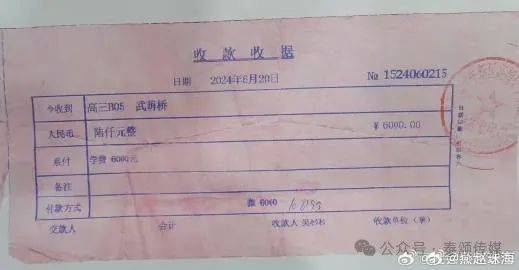 收款收据
日期 2024年6月20日 № 1524060215
今收到 高三B05 武再桥
人民币 陆仟元整 ￥6000.00
系付 学费 6000元
备注
付款方式 微 6000
交款人 会计 收款人 吴杉杉 收款单位(章)
公众号·泰颂传媒
@燕赵珠海